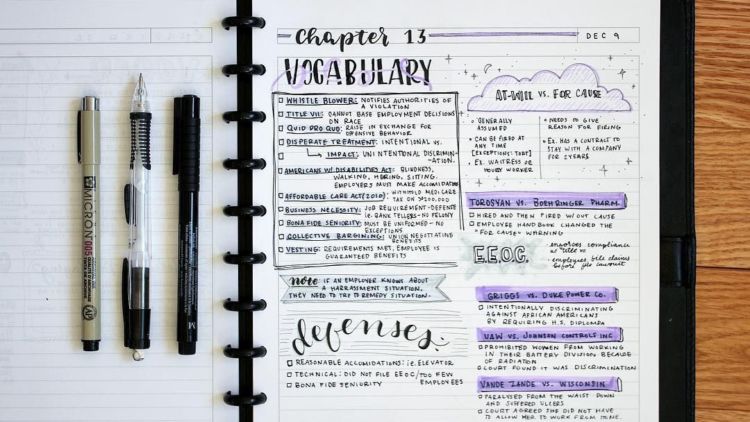 Chapter 13
DEC 9
VOCABULARY
WHISTLE BLOWER: NOTIFIES AUTHORITIES OF
A VIOLATION
TITLE VII: CANNOT BASE EMPLOYMENT DECISIONS
ON RACE
QUID PRO QUO: RAISE IN EXCHANGE FOR
OFFENSIVE BEHAVIOR
DISPERATE TREATMENT: INTENTIONAL VS.
IMPACT: UNINTENTIONAL DISCRIMIN-
ATION.
AMERICANS W/ DISABILITIES ACT: BLINDNESS,
WALKING, HEARING, SITTING.
EMPLOYERS MUST MAKE ACCOMIDATIONS
AFFORDABLE CARE ACT (2010): WITHHOLD MEDICARE
TAX ON $200,000
BUSINESS NECESSITY: JOB REQUIREMENT-DEFENSE
i.e. BANK TELLERS - NO FELONY
BONA FIDE SENIORITY: MUST BE UNIFORMED - NO
EXCEPTIONS
COLLECTIVE BARGINING: UNION NEGOTIATIVE
BENEFITS
VESTING: REQUIREMENTS MET, EMPLOYEE IS
GUARANTEED BENEFITS
note IF AN EMPLOYER KNOWS ABOUT
A HARRASSMENT SITUATION,
THEY NEED TO TRY TO REMEDY SITUATION.
defenses.
REASONABLE ACCOMIDATIONS: i.e. ELEVATOR
TECHNICAL: DID NOT FILE EEOC/TOO FEW
EMPLOYEES
BONA FIDE SENIORITY
AT-WILL VS. FOR CAUSE
GENERALLY
ASSUMED
CAN BE FIRED AT
ANY TIME
[EXCEPTIONS:]
EX. WAITRESS or
HOURLY WORKER
NEEDS TO GIVE
REASON FOR FIRING
EX. HAS A CONTRACT TO
STAY WITH A COMPANY
FOR 2 YEARS
TOROSYAN VS. BOEHRINGER PHARM.
HIRED AND THEN FIRED W/O CAUSE
EMPLOYEE HANDBOOK CHANGED THE
"FOR CAUSE" WARNING
E.E.O.C.
enforces compliance
employees file claims
before
GRIGGS VS. DUKE POWER CO.
INTENTIONALLY DISCRIMINATING
AGAINST AFRICAN AMERICANS
BY REQUIRING H.S. DIPLOMA
UAW VS. JOHNSON CONTROLS INC
PROHIBITED WOMEN FROM WORKING
IN THEIR BATTERY DIVISION BECAUSE
OF RADIATION
COURT FOUND IT WAS DISCRIMINATION
VANDE ZANDE VS. WISCONSIN
PARALYSED FROM THE WAIST DOWN
AND SUFFERED ULCERS
COURT AGREED SHE DID NOT HAVE
TO ALLOW HER TO WORK FROM HOME.
MICRON 005
M